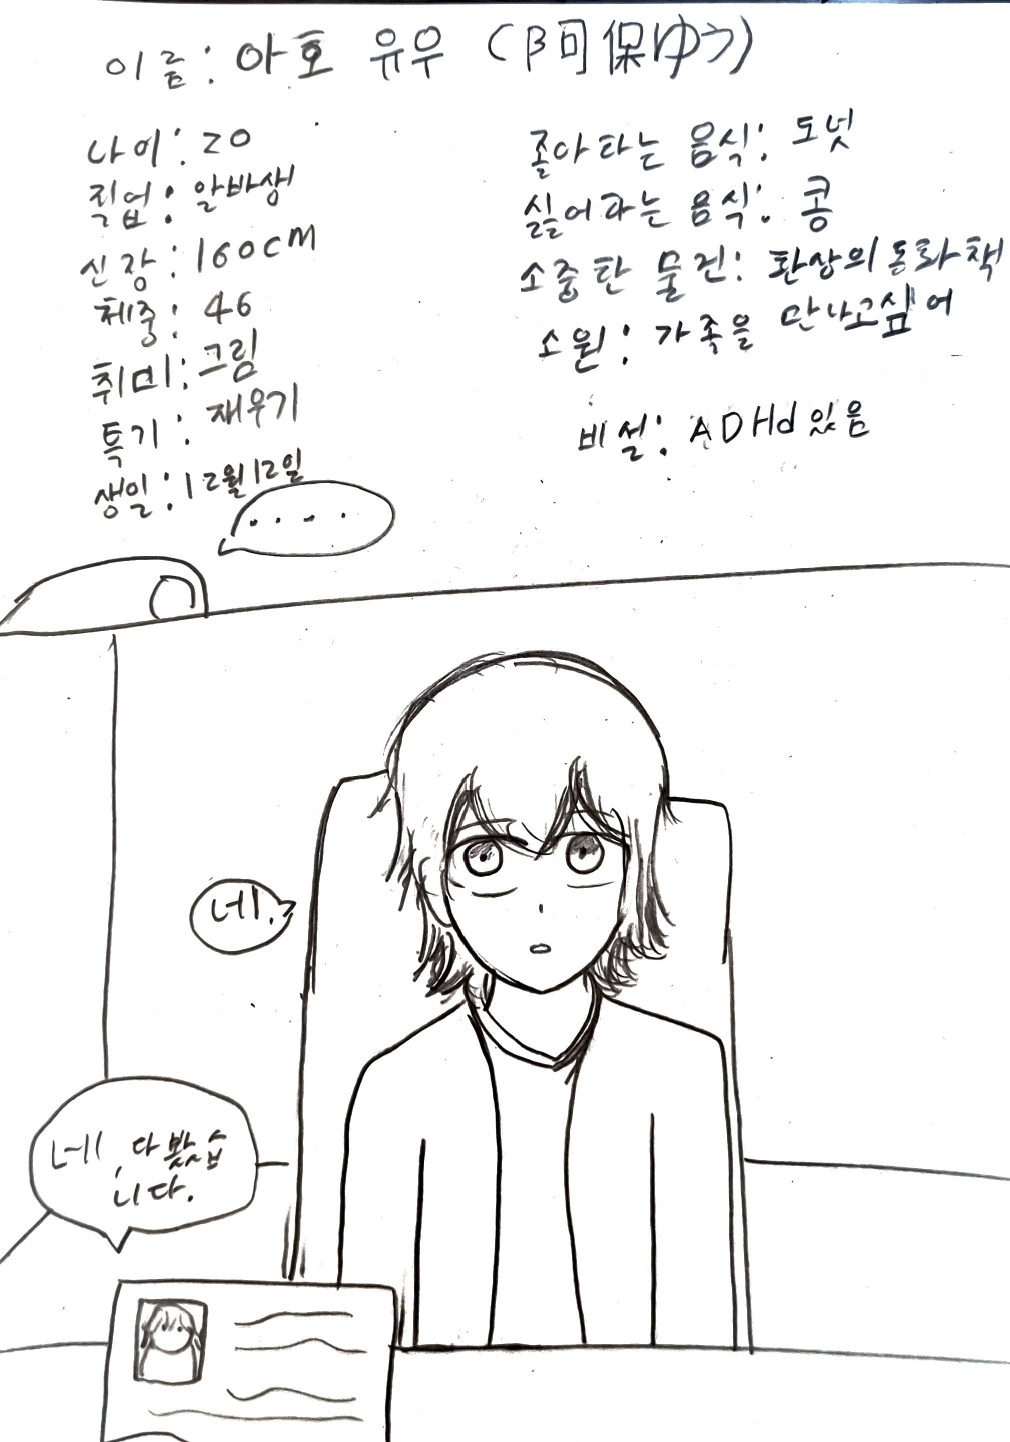 이름: 아호 유우 (阿保ゆう)
나이: 20
직업: 알바생
신장: 160cM
체중: 46
취미: 그림
특기: 재우기
생일: 12월12일
좋아하는 음식: 도넛
싫어하는 음식: 콩
소중한 물건: 환상의 동화책
소원: 가족을 만나고싶어
비설: ADHd 있음
....
네.
네, 다 봤습
니다.